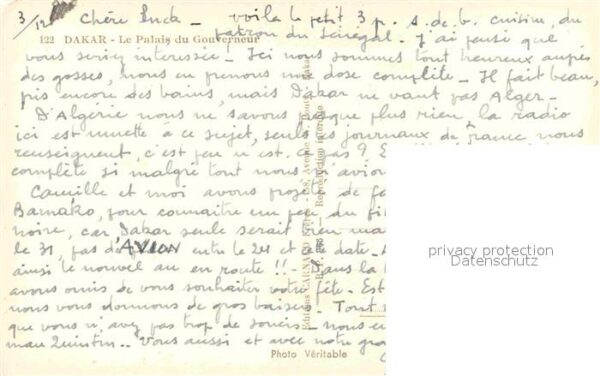 3/12 Chère Puck - voilà le petit 3 p. s.de.b. cuisine, du
122 DAKAR - Le Palais du Gouverneur
patron du Sénégal. J'ai pensé que
vous seriez intéressée - Ici nous sommes tout heureux auprès
des gosses, nous en prenons une dose complète - Il fait beau,
pris encore des bains, mais Dakar ne vaut pas Alger -
D'Algérie nous ne savons presque plus rien, la radio
ici est muette à ce sujet, seuls les journaux de France nous
renseignent, c'est peu n'est ce pas ?
complète si malgré tout nous n'avions
Camille et moi avons projeté de
Bamako, pour connaître un peu du
noire, car Dakar seule serait bien
le 31, pas d'AVION entre le 24 et cette date -
ainsi le nouvel an en route !! - Dans la
avons omis de vous souhaiter votre fête - Est
nous vous donnons de gros baisers. Tout
que vous n'avez pas trop de soucis - nous
man Quintin - Vous aussi et avec notre
Photo Véritable
privacy protection
Datenschutz